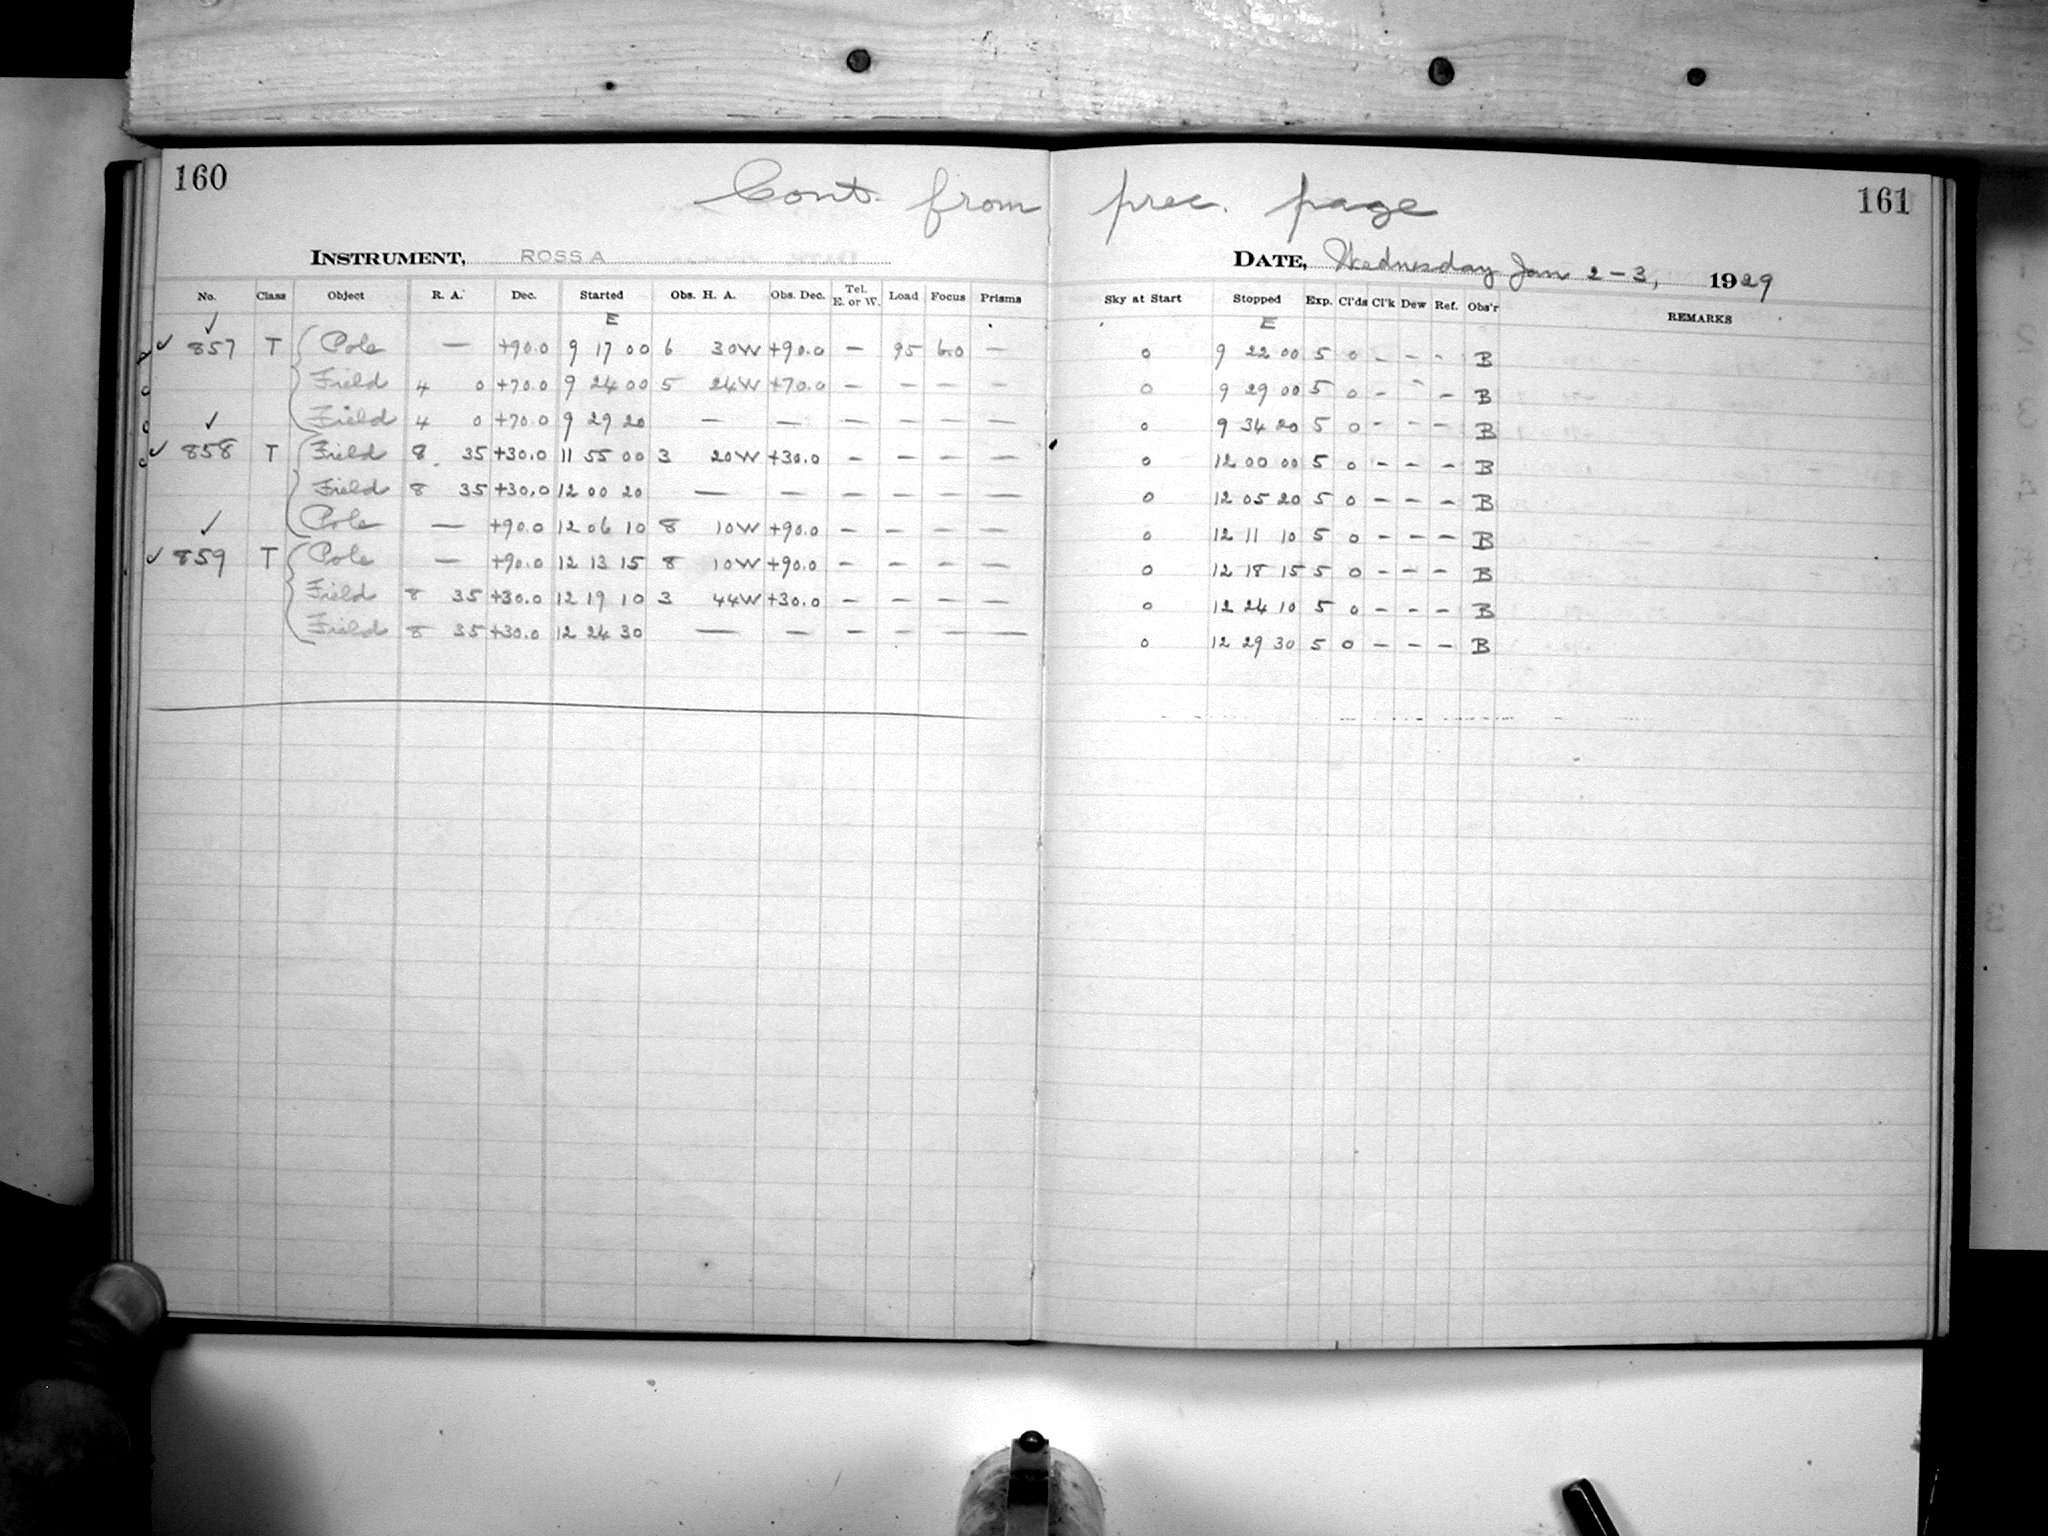 160 Cont. from prec. page 161
INSTRUMENT, ROSS A DATE, Wednesday Jan 2-3, 1929
No. Class Object R. A. Dec. Started Obs. H. A. Obs. Dec. Tel. E. or W. Load Focus Prisms Sky at Start Stopped Exp. Cl'ds Cl'k Dew Ref. Obs'r REMARKS
E E
✓ 857 T Pole — +90.0 9 17 00 6 30W +90.0 — 95 6.0 — 0 9 22 00 5 0 - - - B
Field 4 0 +70.0 9 24 00 5 24W +70.0 — — — — 0 9 29 00 5 0 - - - B
✓ Field 4 0 +70.0 9 29 20 — — — — — — 0 9 34 20 5 0 - - - B
✓ 858 T Field 8 35 +30.0 11 55 00 3 20W +30.0 — — — — 0 12 00 00 5 0 - - - B
Field 8 35 +30.0 12 00 20 — — — — — — 0 12 05 20 5 0 - - - B
✓ Pole — +90.0 12 06 10 8 10W +90.0 — — — — 0 12 11 10 5 0 - - - B
✓ 859 T Pole — +90.0 12 13 15 8 10W +90.0 — — — — 0 12 18 15 5 0 - - - B
Field 8 35 +30.0 12 19 10 3 44W +30.0 — — — — 0 12 24 10 5 0 - - - B
Field 8 35 +30.0 12 24 30 — — — — — — 0 12 29 30 5 0 - - - B